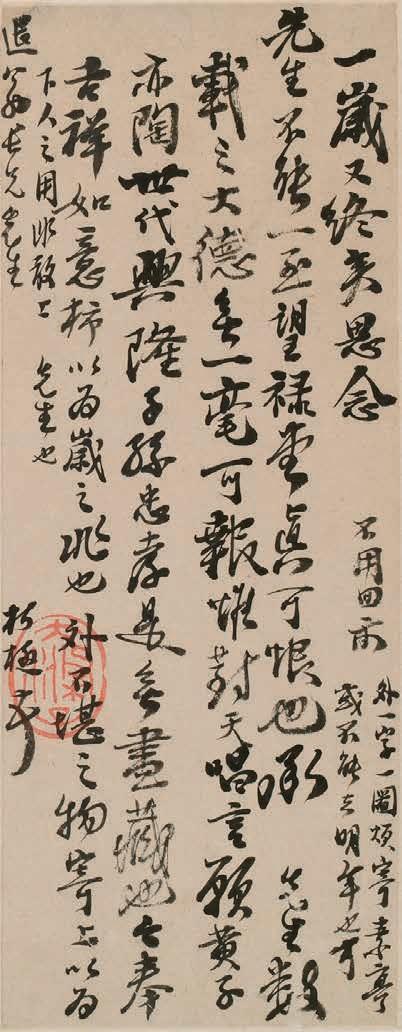 一歲又終矣思念
不用回示
外一字一圖煩寄素亭
或不能至明年也可
先生不能一至望祿堂真可恨也承 先生數
載之大德無一毫可報惟對天唱言願黃子
亦陶世代興隆子孫忠孝是無盡藏也今奉
吉祥如意柿以為歲之兆也 外不堪之物寄上以為
下人之用非敢上 先生也
退翁長兄先生 朽極弟